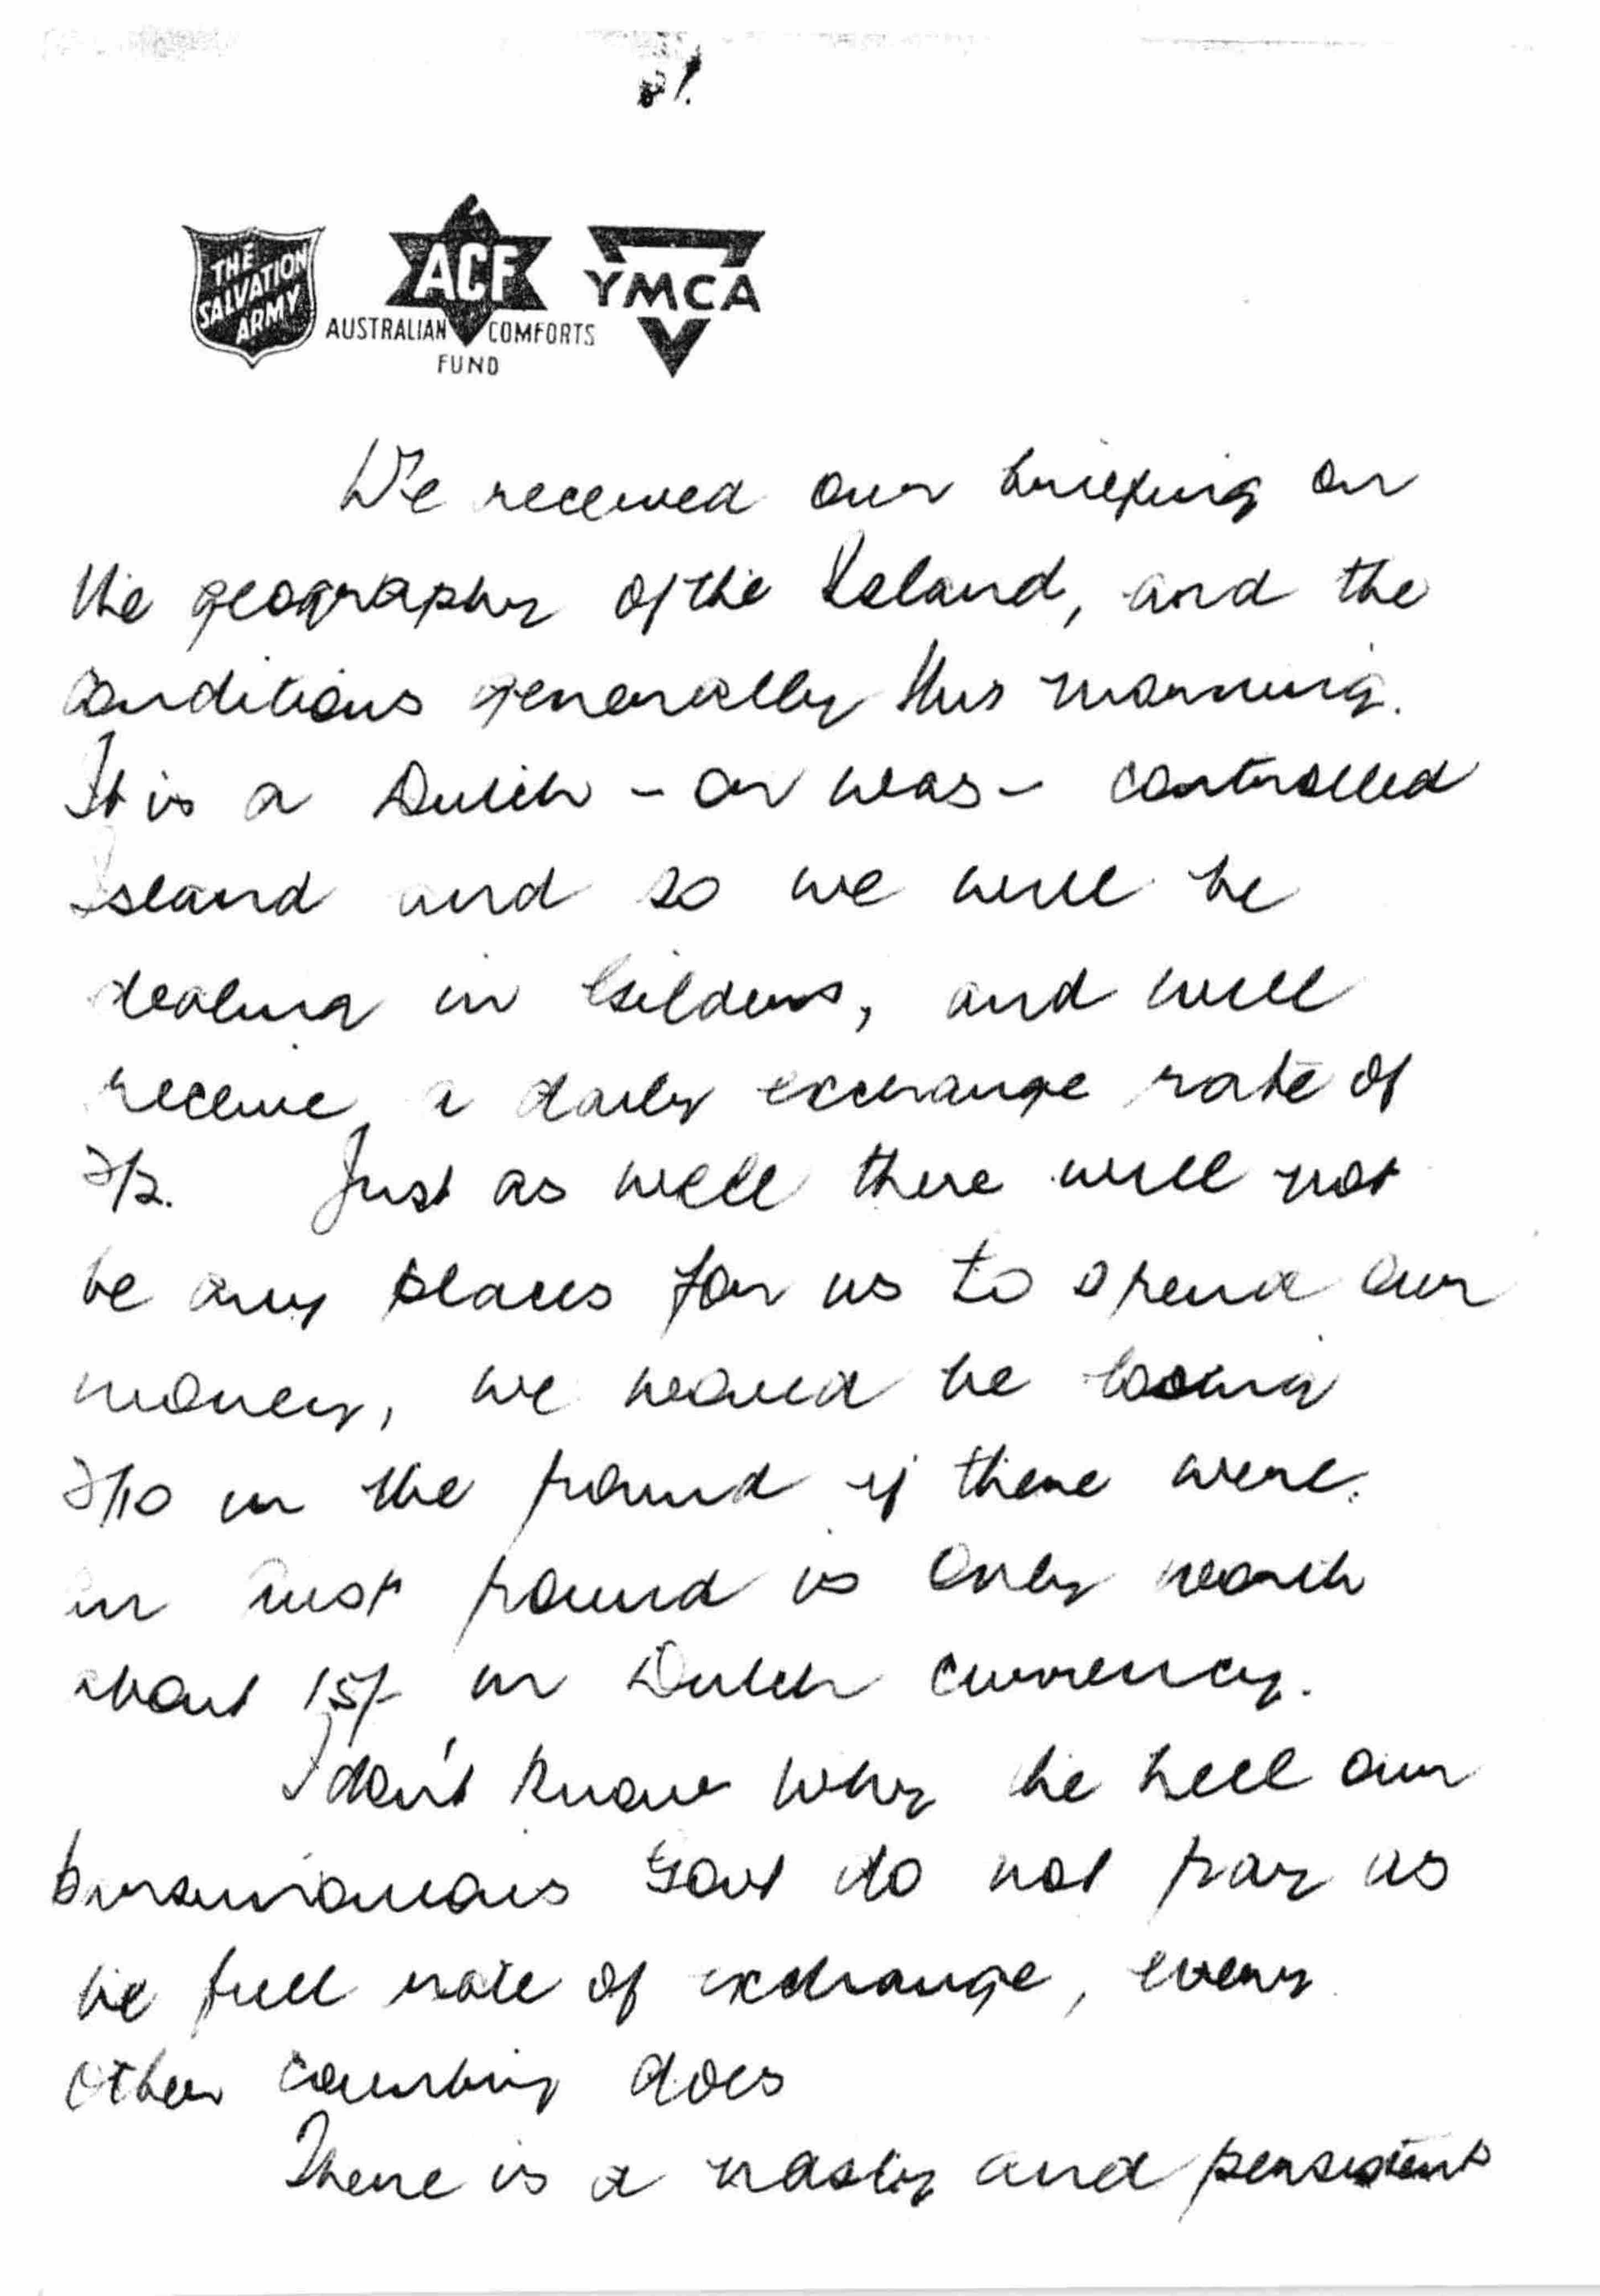 8/.
THE
SALVATION
ARMY
ACF
AUSTRALIAN COMFORTS
FUND
YMCA
We received our briefing on
the geography of the Island, and the
conditions generally this morning.
It is a Dutch - or was - controlled
Island and so we will be
dealing in Gilders, and will
receive a daily exchange rate of
Just as well there will not
be any places for us to spend our
money, we would be loosing
in the pound if there were.
Aust pound is only worth
about 15/- in Dutch currency.
I don't know why the hell our
Govt do not pay us
the full rate of exchange, every
other country does
There is a nasty and persistent